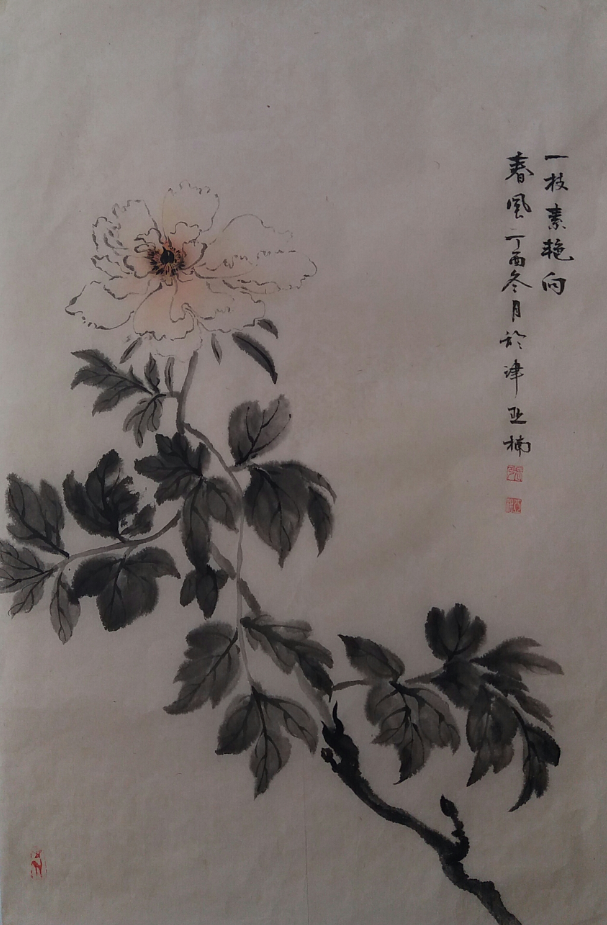 一枝素艳向
春风丁酉冬月於津亚楠